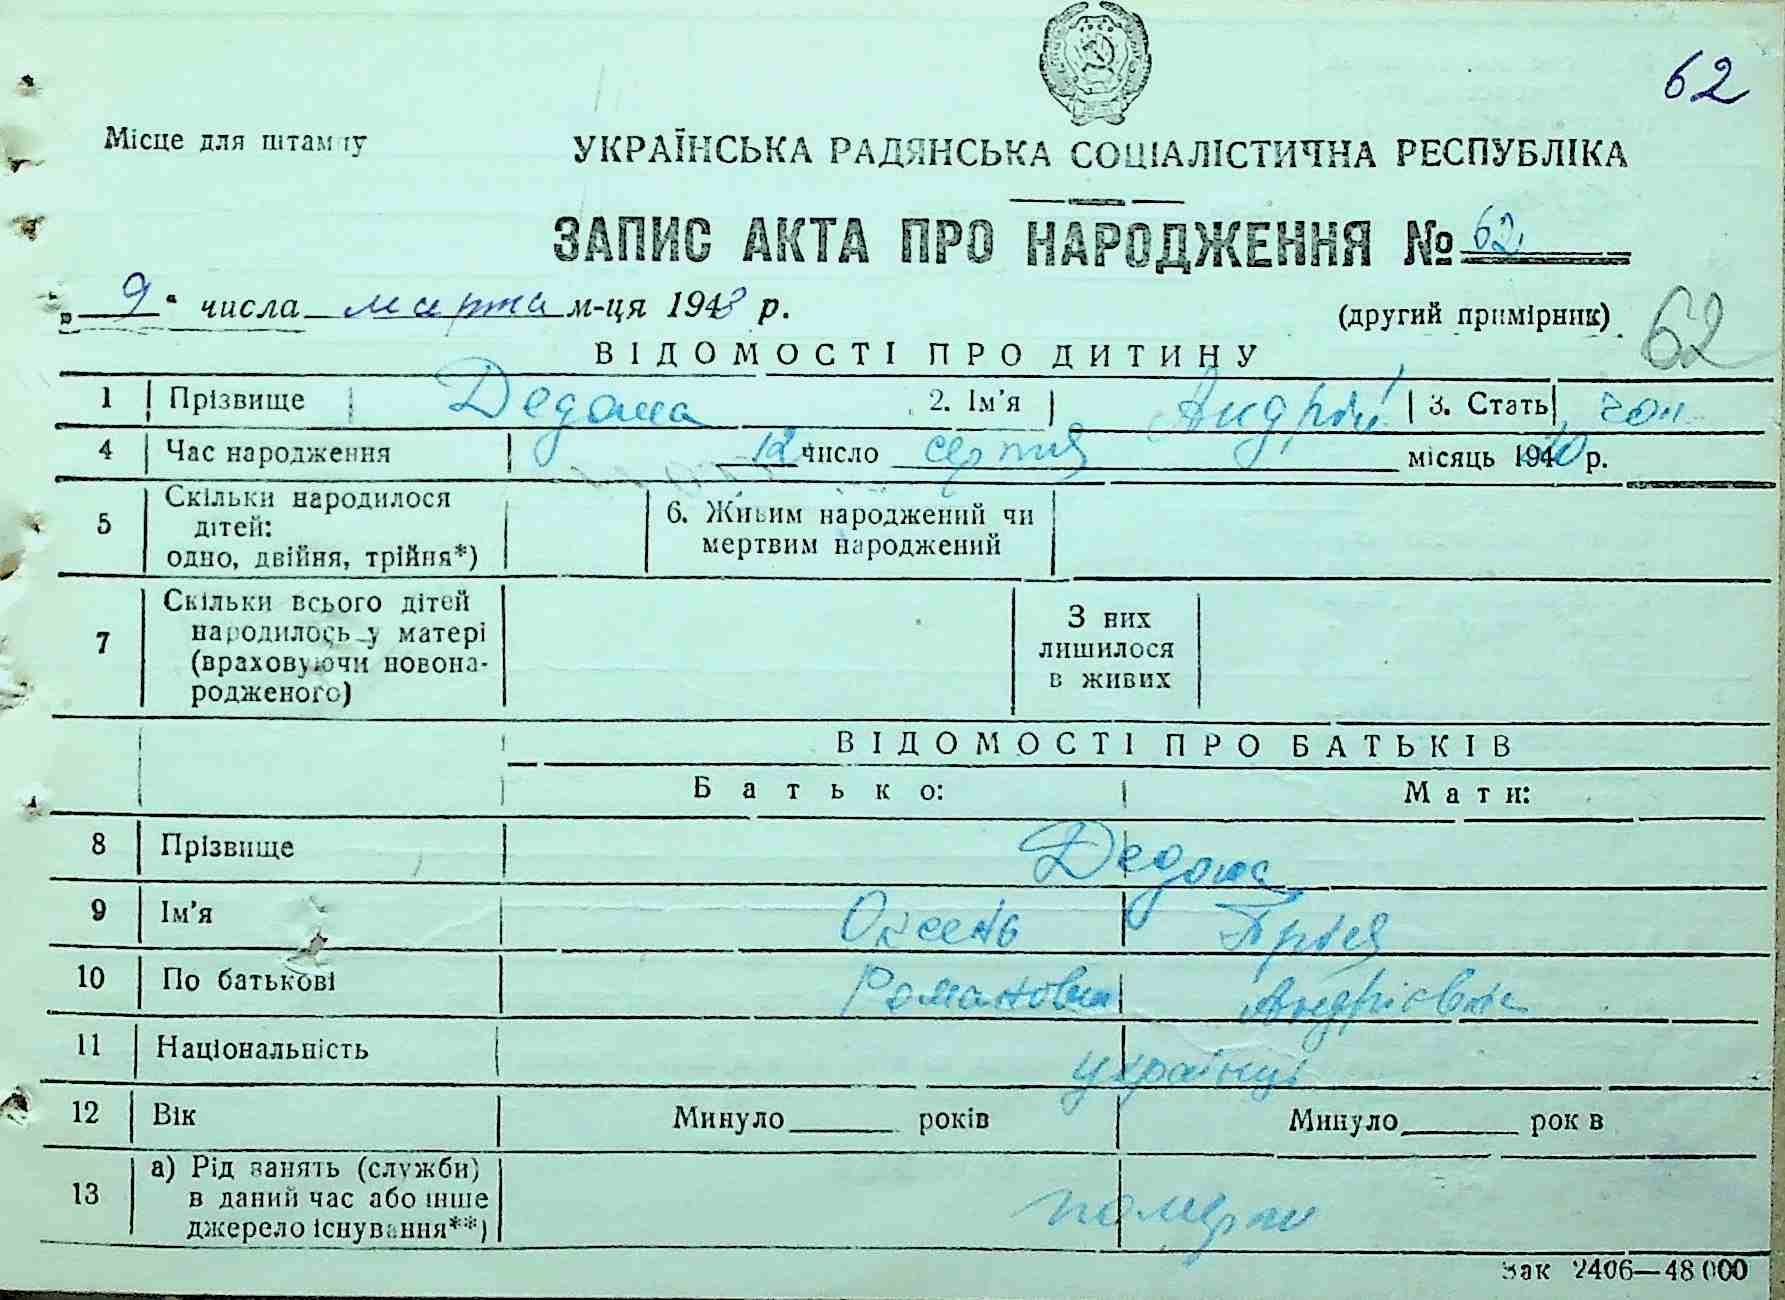 62
Місце для штампу
УКРАЇНСЬКА РАДЯНСЬКА СОЦІАЛІСТИЧНА РЕСПУБЛІКА
ЗАПИС АКТА ПРО НАРОДЖЕННЯ № 62
„ 9 “ числа марта м-ця 1948 р.
(другий примірник) 62
ВІДОМОСТІ ПРО ДИТИНУ
1 Прізвище Дедома 2. Ім'я Андрій 3. Стать чол
4 Час народження 12 число серпня місяць 1940 р.
5 Скільки народилося дітей: одно, двійня, трійня*)
6. Живим народжений чи мертвим народжений
7 Скільки всього дітей народилось у матері (враховуючи новонародженого)
З них лишилося в живих
ВІДОМОСТІ ПРО БАТЬКІВ
Батько: Мати:
8 Прізвище
9 Ім'я Оксень
10 По батькові Романович Андрієвна
11 Національність українці
12 Вік Минуло років Минуло рок в
13 а) Рід занять (служби) в даний час або інше джерело існування**) померли
Зак 2406—48 000